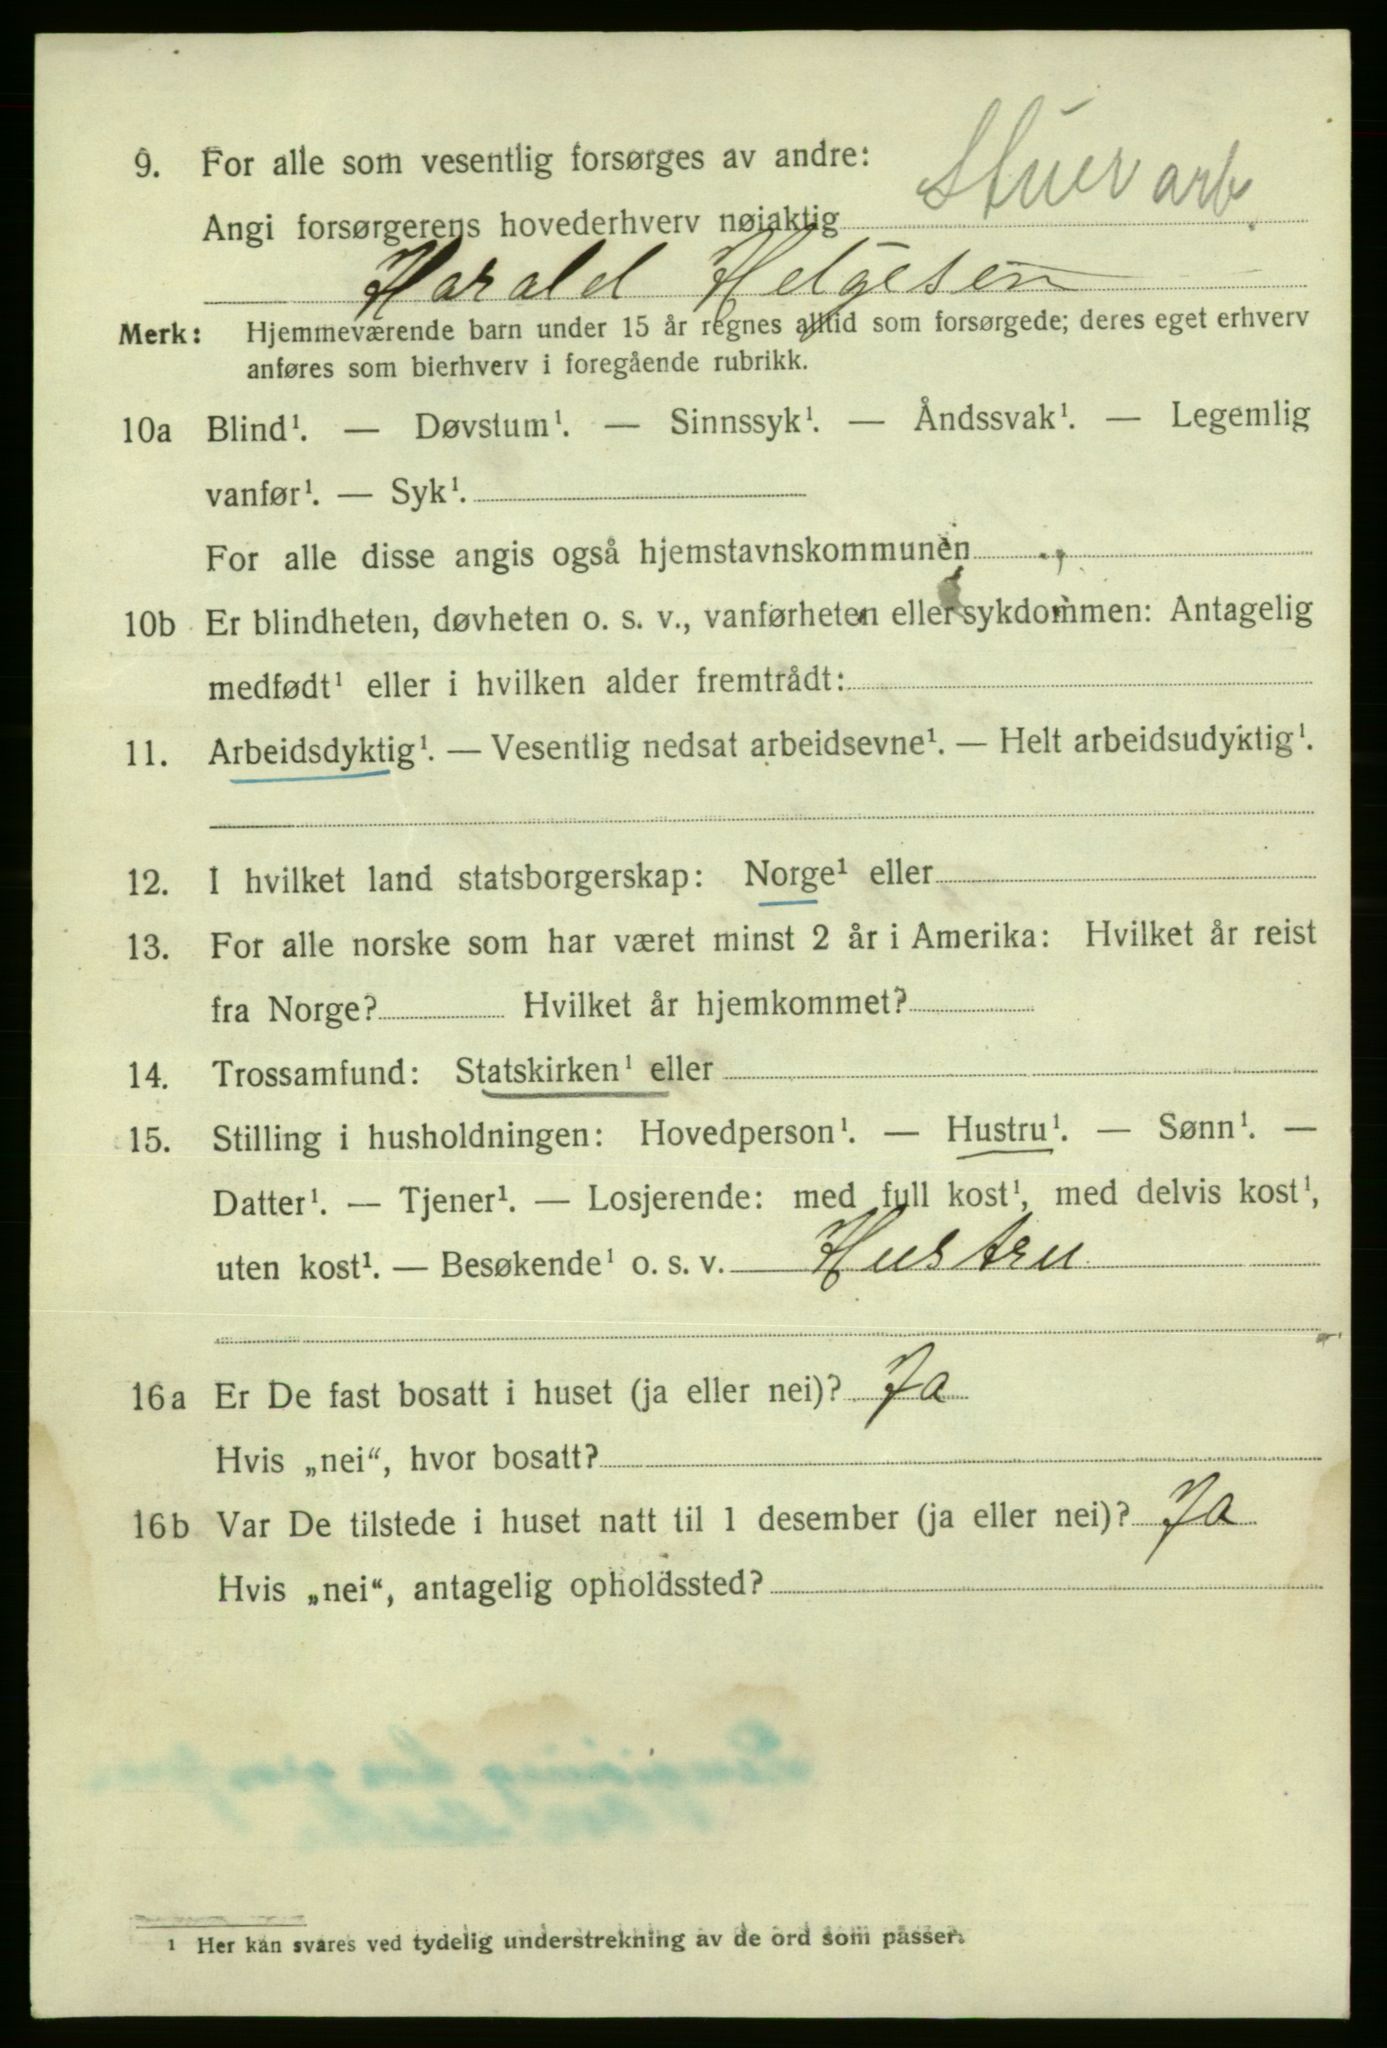 9. For alle som vesentlig forsørges av andre:
Angi forsørgerens hovederhverv nøiaktig Stuerarb.
Harald Helgesen
Merk: Hjemmeværende barn under 15 år regnes alltid som forsørgede; deres eget erhverv
anføres som bierhverv i foregående rubrikk.
10a Blind¹. — Døvstum¹. — Sinnssyk¹. — Åndssvak¹. — Legemlig
vanfør¹. — Syk¹.
For alle disse angis også hjemstavnskommunen
10b Er blindheten, døvheten o. s. v., vanførheten eller sykdommen: Antagelig
medfødt¹ eller i hvilken alder fremtrådt:
11. Arbeidsdyktig¹. — Vesentlig nedsat arbeidsevne¹. — Helt arbeidsudyktig¹.
12. I hvilket land statsborgerskap: Norge¹ eller
13. For alle norske som har været minst 2 år i Amerika: Hvilket år reist
fra Norge? Hvilket år hjemkommet?
14. Trossamfund: Statskirken¹ eller
15. Stilling i husholdningen: Hovedperson¹. — Hustru¹. — Sønn¹. —
Datter¹. — Tjener¹. — Losjerende: med full kost¹, med delvis kost¹,
uten kost¹. — Besøkende¹ o. s. v. Hustru
16a Er De fast bosatt i huset (ja eller nei)? Ja
Hvis „nei“, hvor bosatt?
16b Var De tilstede i huset natt til 1 desember (ja eller nei)? Ja
Hvis „nei“, antagelig opholdssted?
¹ Her kan svares ved tydelig understrekning av de ord som passer.